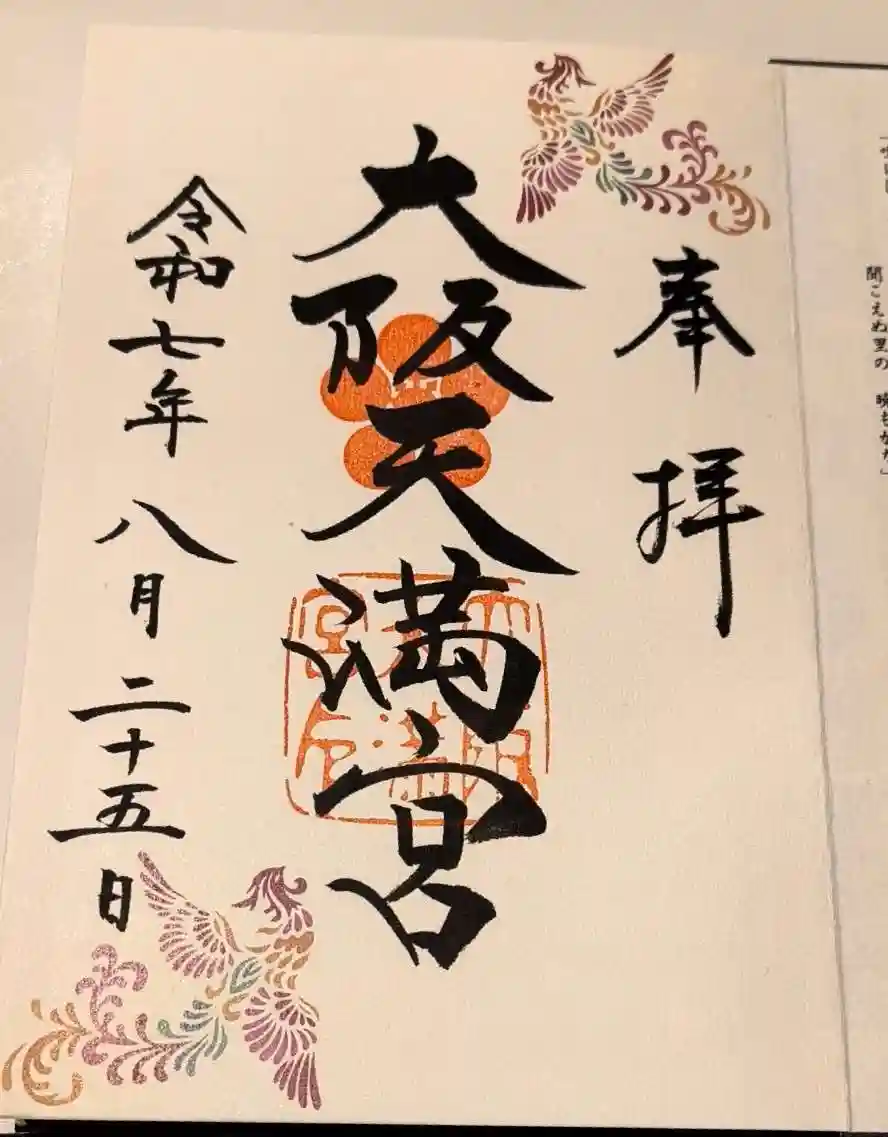 聞こえぬ里の
奉拝
大阪天満宮
令和七年八月二十五日